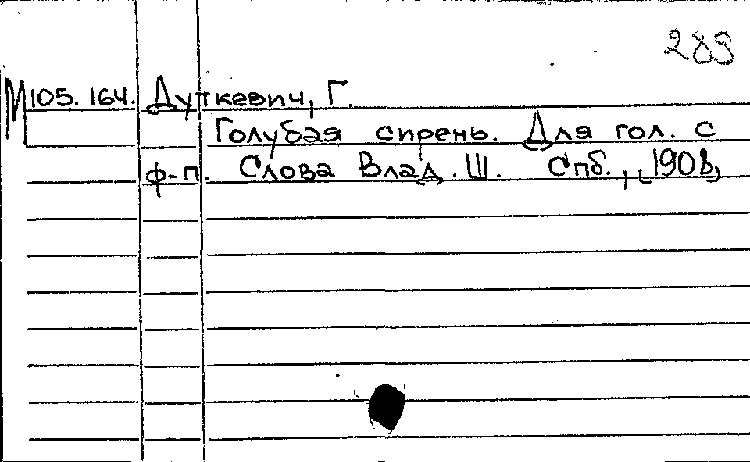 289
М105.164. Дуткевич, Г.
Голубая сирень. Для гол. с
ф-п. Слова Влад. Ш. Спб., [1908]